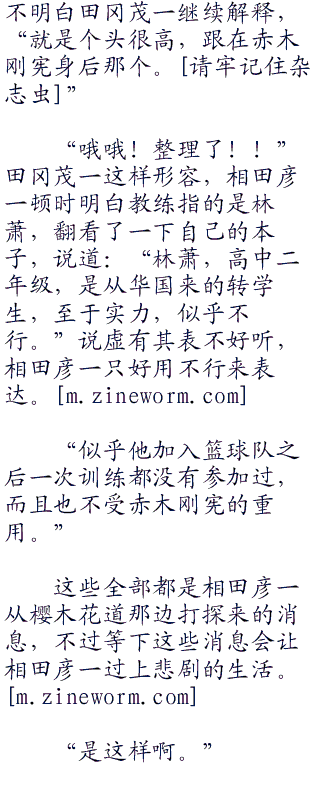 不明白田冈茂一继续解释，
“就是个头很高，跟在赤木
刚宪身后那个。[请牢记住杂
志虫]”
“哦哦！整理了！！”
田冈茂一这样形容，相田彦
一顿时明白教练指的是林
萧，翻看了一下自己的本
子，说道：“林萧，高中二
年级，是从华国来的转学
生，至于实力，似乎不
行。”说虚有其表不好听，
相田彦一只好用不行来表
达。[m.zineworm.com]
“似乎他加入篮球队之
后一次训练都没有参加过，
而且也不受赤木刚宪的重
用。”
这些全部都是相田彦一
从樱木花道那边打探来的消
息，不过等下这些消息会让
相田彦一过上悲剧的生活。
[m.zineworm.com]
“是这样啊。”